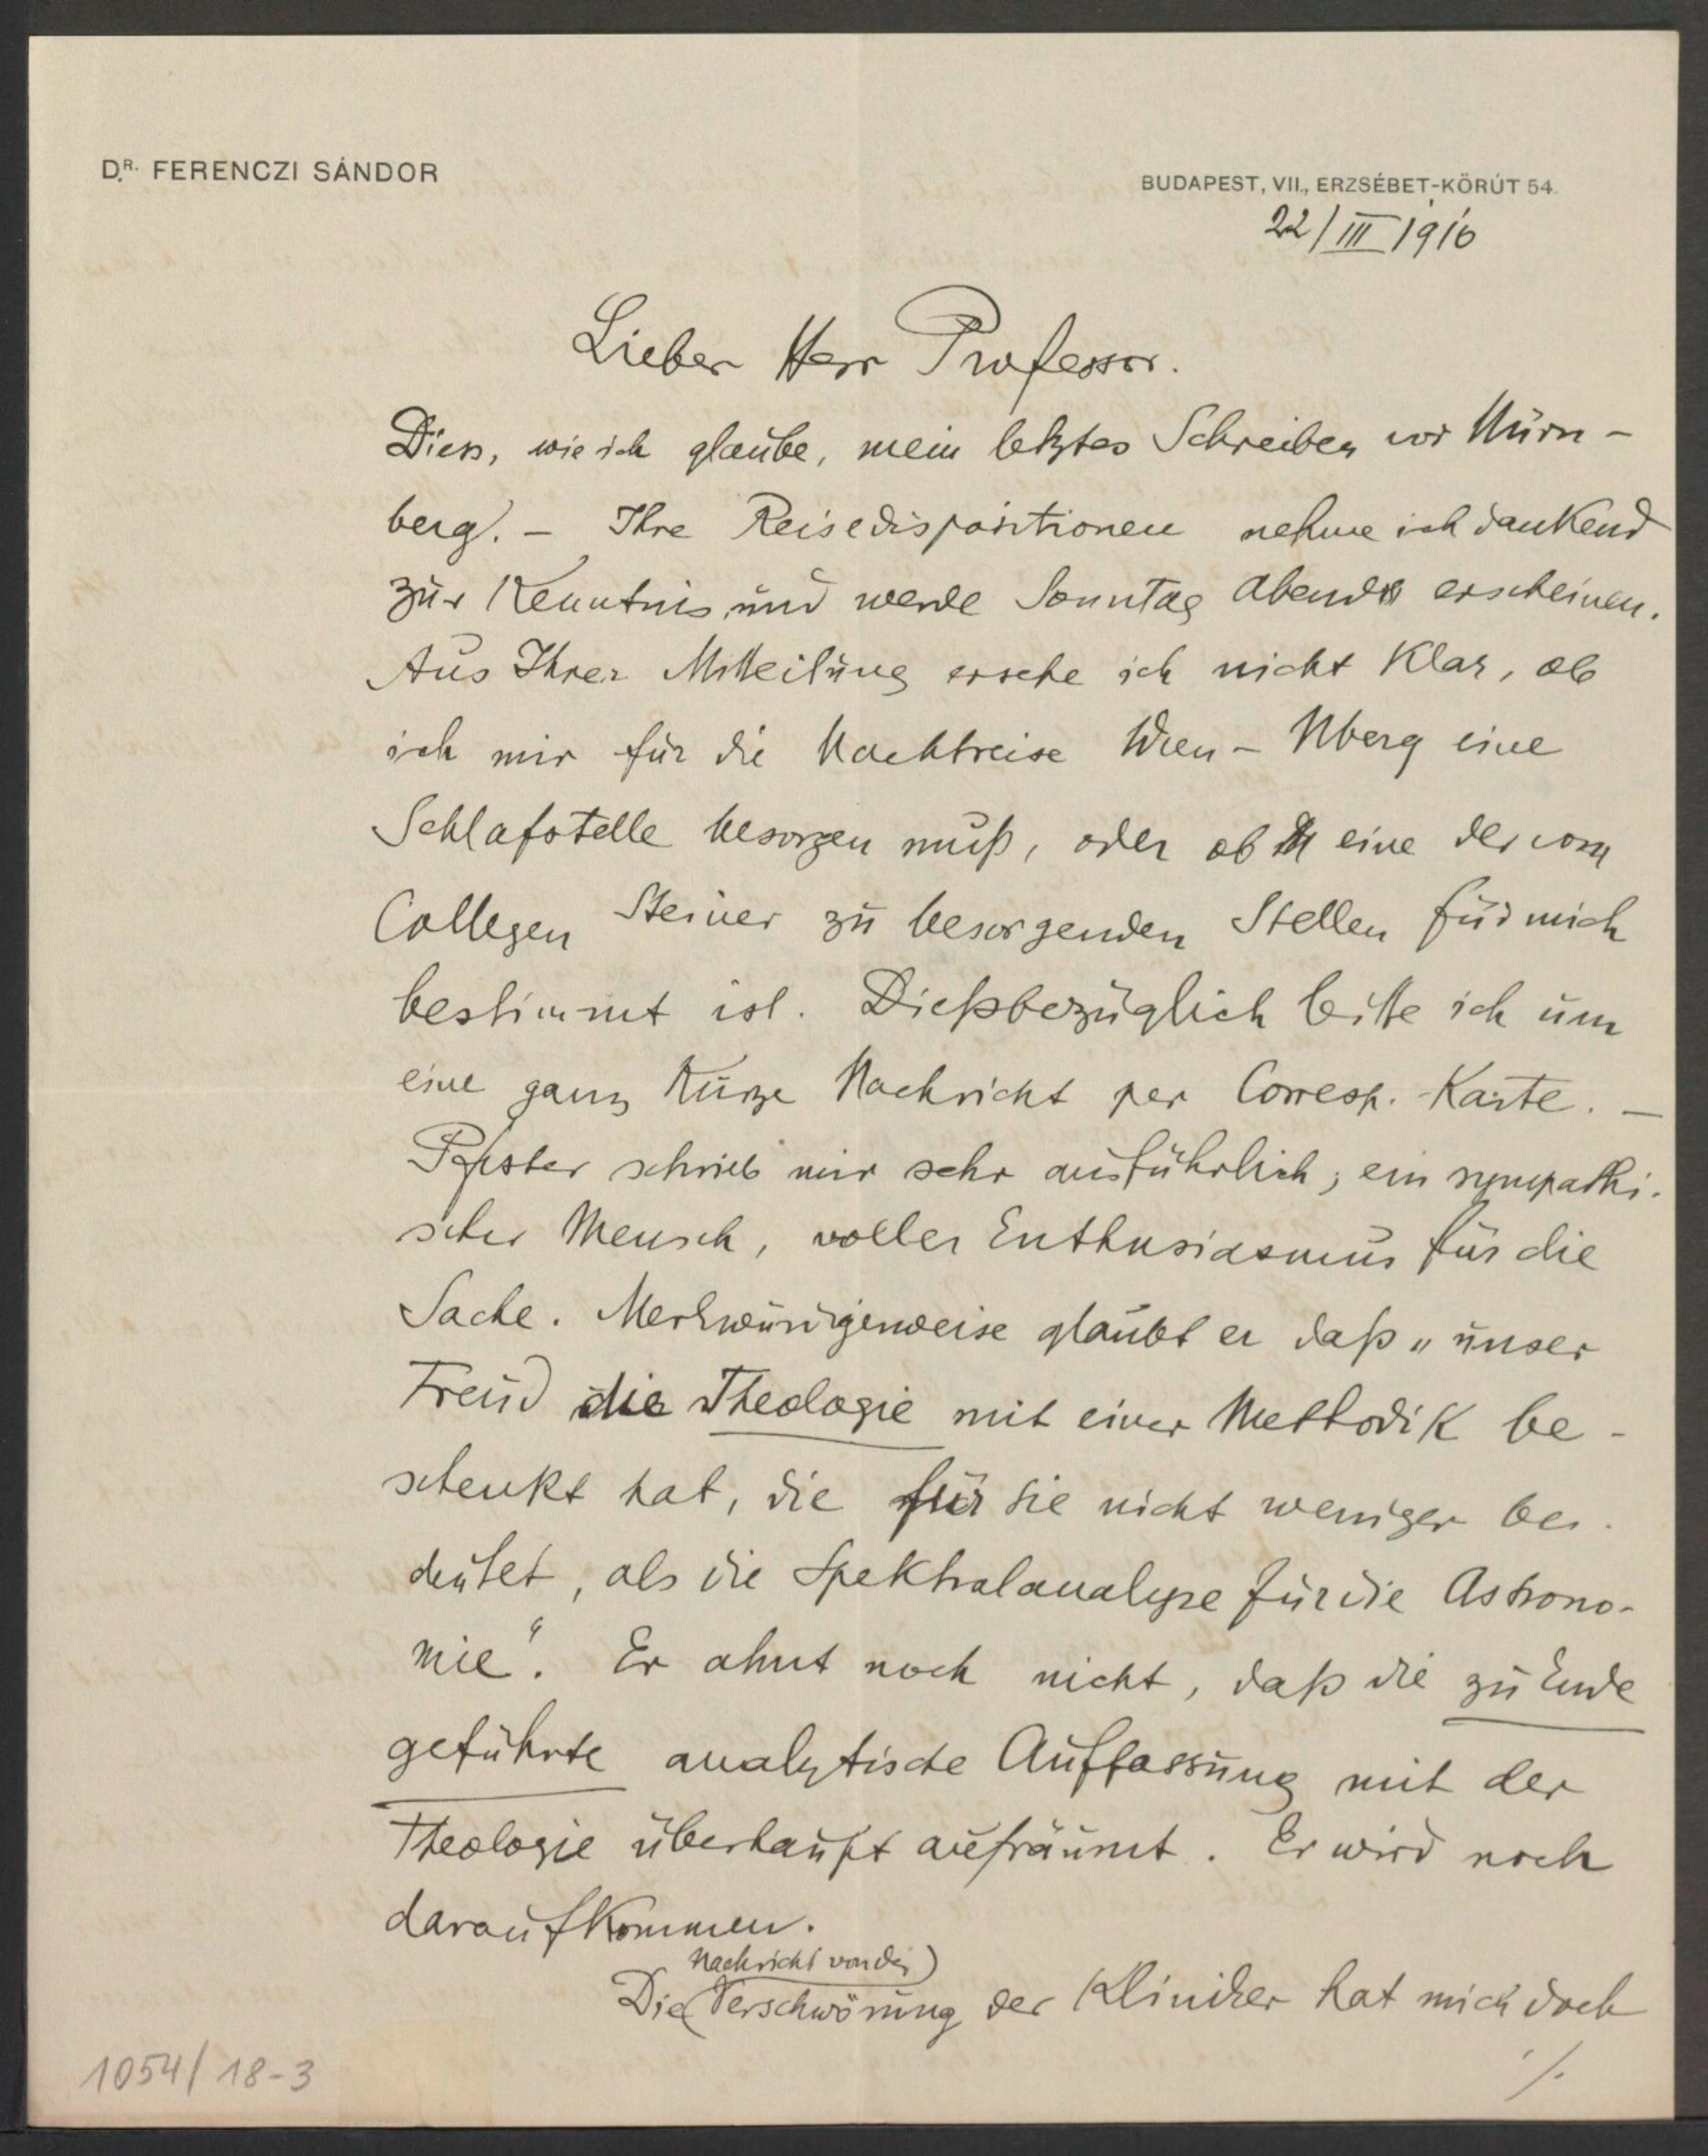 DR. FERENCZI SÁNDOR
BUDAPEST, VII., ERZSÉBET-KÖRÚT 54.
22/III 1910
Lieber Herr Professor.
Dies, wie ich glaube, mein letztes Schreiben vor Nürn-
berg. – Ihre Reisedispositionen nehme ich dankend
zur Kenntnis und werde Sonntag abends erscheinen.
Aus Ihrer Mitteilung ersehe ich nicht klar, ob
ich mir für die Nachtreise Wien – Nberg eine
Schlafstelle besorgen muß, oder ob eine der vom
Collegen Steiner zu besorgenden Stellen für mich
bestimmt ist. Dießbezüglich bitte ich um
eine ganz kurze Nachricht per Corresp. Karte. –
Pfister schrieb mir sehr ausführlich; ein sympathi-
scher Mensch, voller Enthusiasmus für die
Sache. Merkwürdigerweise glaubt er daß „unser
Freud die Theologie mit einer Methodik be-
schenkt hat, die für sie nicht weniger be-
deutet, als die Spektralanalyse für die Astrono-
mie“. Er ahnt noch nicht, daß die zu Ende
geführte analytische Auffassung mit der
Theologie überhaupt aufräumt. Er wird noch
darauf kommen.
Nachricht von der
Die Verschwörung der Kliniker hat mich doch
./.
1054/18-3